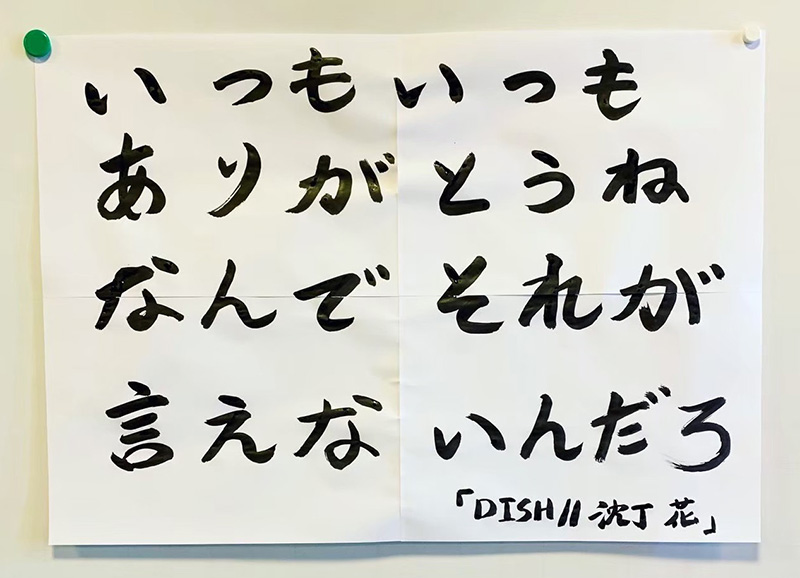 いつもいつも
ありがとうね
なんでそれが
言えないんだろ
「DISH// 沈丁花」